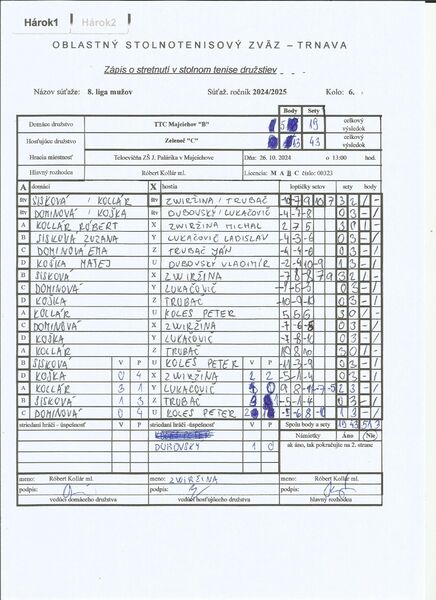 Hárok1 Hárok2
OBLASTNÝ STOLNOTENISOVÝ ZVÄZ – TRNAVA
Zápis o stretnutí v stolnom tenise družstiev _ _ _
Názov súťaže: 8. liga mužov Súťaž. ročník 2024/2025 Kolo: 6.
Body Sety
Domáce družstvo TTC Majcichov "B" 5 19 celkový výsledok
Hosťujúce družstvo Zeleneč "C" 13 43 celkový výsledok
Hracia miestnosť Telocvičňa ZŠ J. Palárika v Majcichove Dňa: 26. 10. 2024 o 13:00 hod.
Hlavný rozhodca Róbert Kollár ml. Licencia: M A B C číslo: 00323
A domáci X hostia loptičky setov sety body
štv SISKOVÁ / KOLLÁR štv ZWIRŽINA / TRUBAČ 3 2 / -
štv DOMINOVÁ / KOŠKA štv DUBOVSKÝ / LUKAČOVIČ -4 -7 -8 0 3 - /
A KOLLÁR RÓBERT X ZWIRŽINA MICHAL 2 7 5
B SISKOVÁ ZUZANA Y LUKAČOVIČ LADISLAV -4 -3 -6 0 3 - /
C DOMINOVÁ EMA Z TRUBAČ JÁN -4 -4 -6 0 3 - /
D KOŠKA MATEJ U DUBOVSKÝ VLADIMÍR -2 -9 -10 -9 1 3 - /
B SISKOVÁ X ZWIRŽINA -7 8 8 7 9 3 2 / -
C DOMINOVÁ Y LUKAČOVIČ 0 3 - /
D KOŠKA Z TRUBAČ -10 -9 -10 0 3 - /
A KOLLÁR U KOLES PETER 5 5 6 3 0 / -
C DOMINOVÁ X ZWIRŽINA -7 -6 -8 0 3 - /
D KOŠKA Y LUKAČOVIČ -7 -8 -10 0 3 - /
A KOLLÁR Z TRUBAČ 10 8 10 3 0 / -
B SISKOVÁ V P U KOLES PETER V P -11 -3 -9 0 3 - /
D KOŠKA 0 4 X ZWIRŽINA 2 2 -5 -1 -4 0 3 - /
A KOLLÁR 3 1 Y LUKAČOVIČ 4 0 9 8 -11 -7 -5 2 3 - /
B SISKOVÁ 1 3 Z TRUBAČ 3 1 -5 -1 -4 0 3 - /
C DOMINOVÁ 0 4 U KOLES PETER -5 -6 8 1 3 - /
striedaní hráči -úspešnosť V P striedaní hráči - úspešnosť V P Spolu body a sety 19 43 5 13
KOLES PETER Námietky Áno Nie
DUBOVSKÝ 1 0 ak áno, tak pokračujte na 2. strane
meno: Róbert Kollár ml. meno: ZWIRŽINA meno: Róbert Kollár ml.
podpis: podpis: podpis:
vedúci domáceho družstva vedúci hosťujúceho družstva hlavný rozhodca